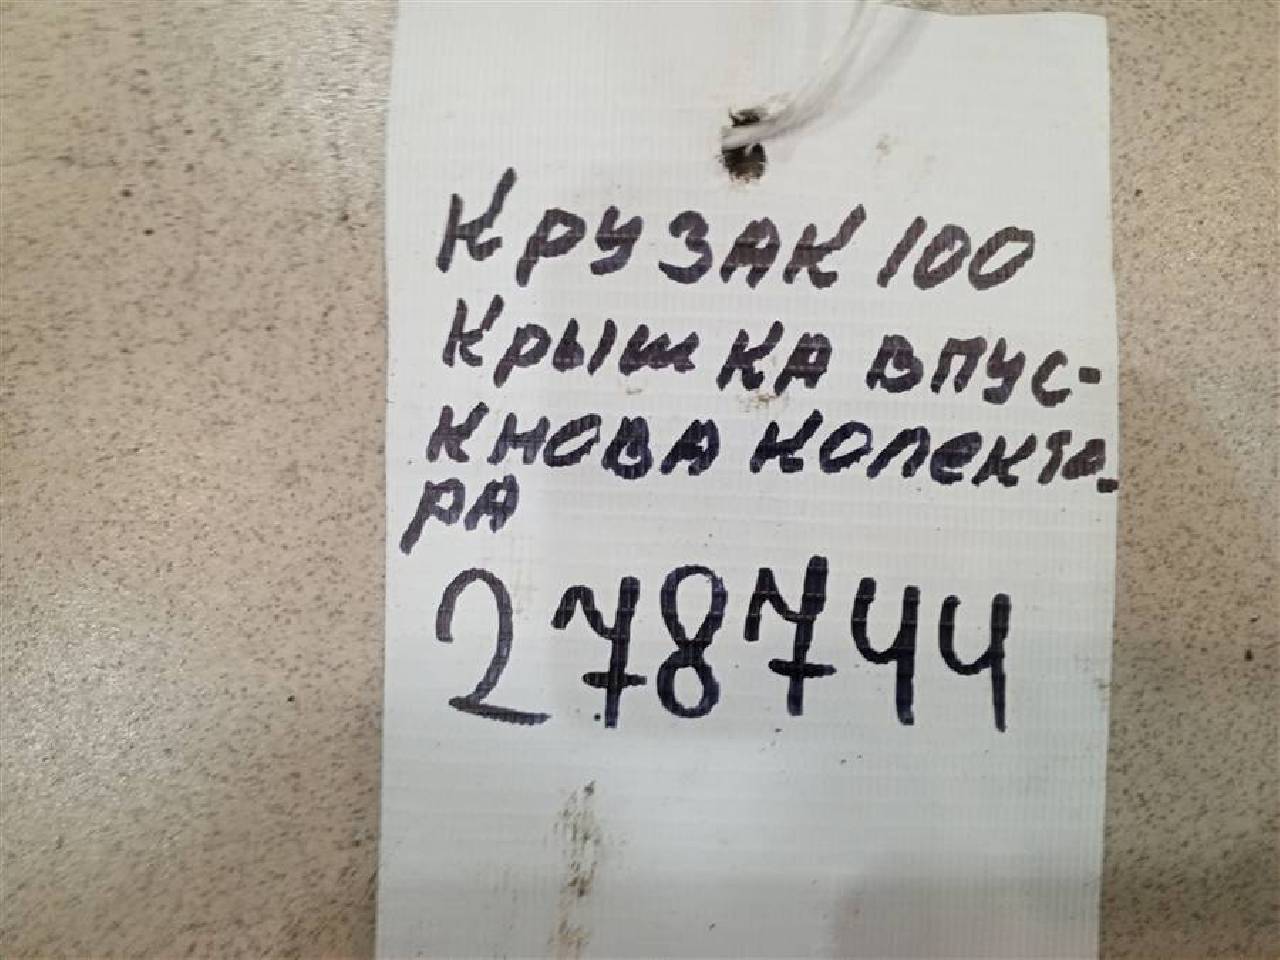 Крузак 100
Крышка впус-
кнова колекто-
ра
278744